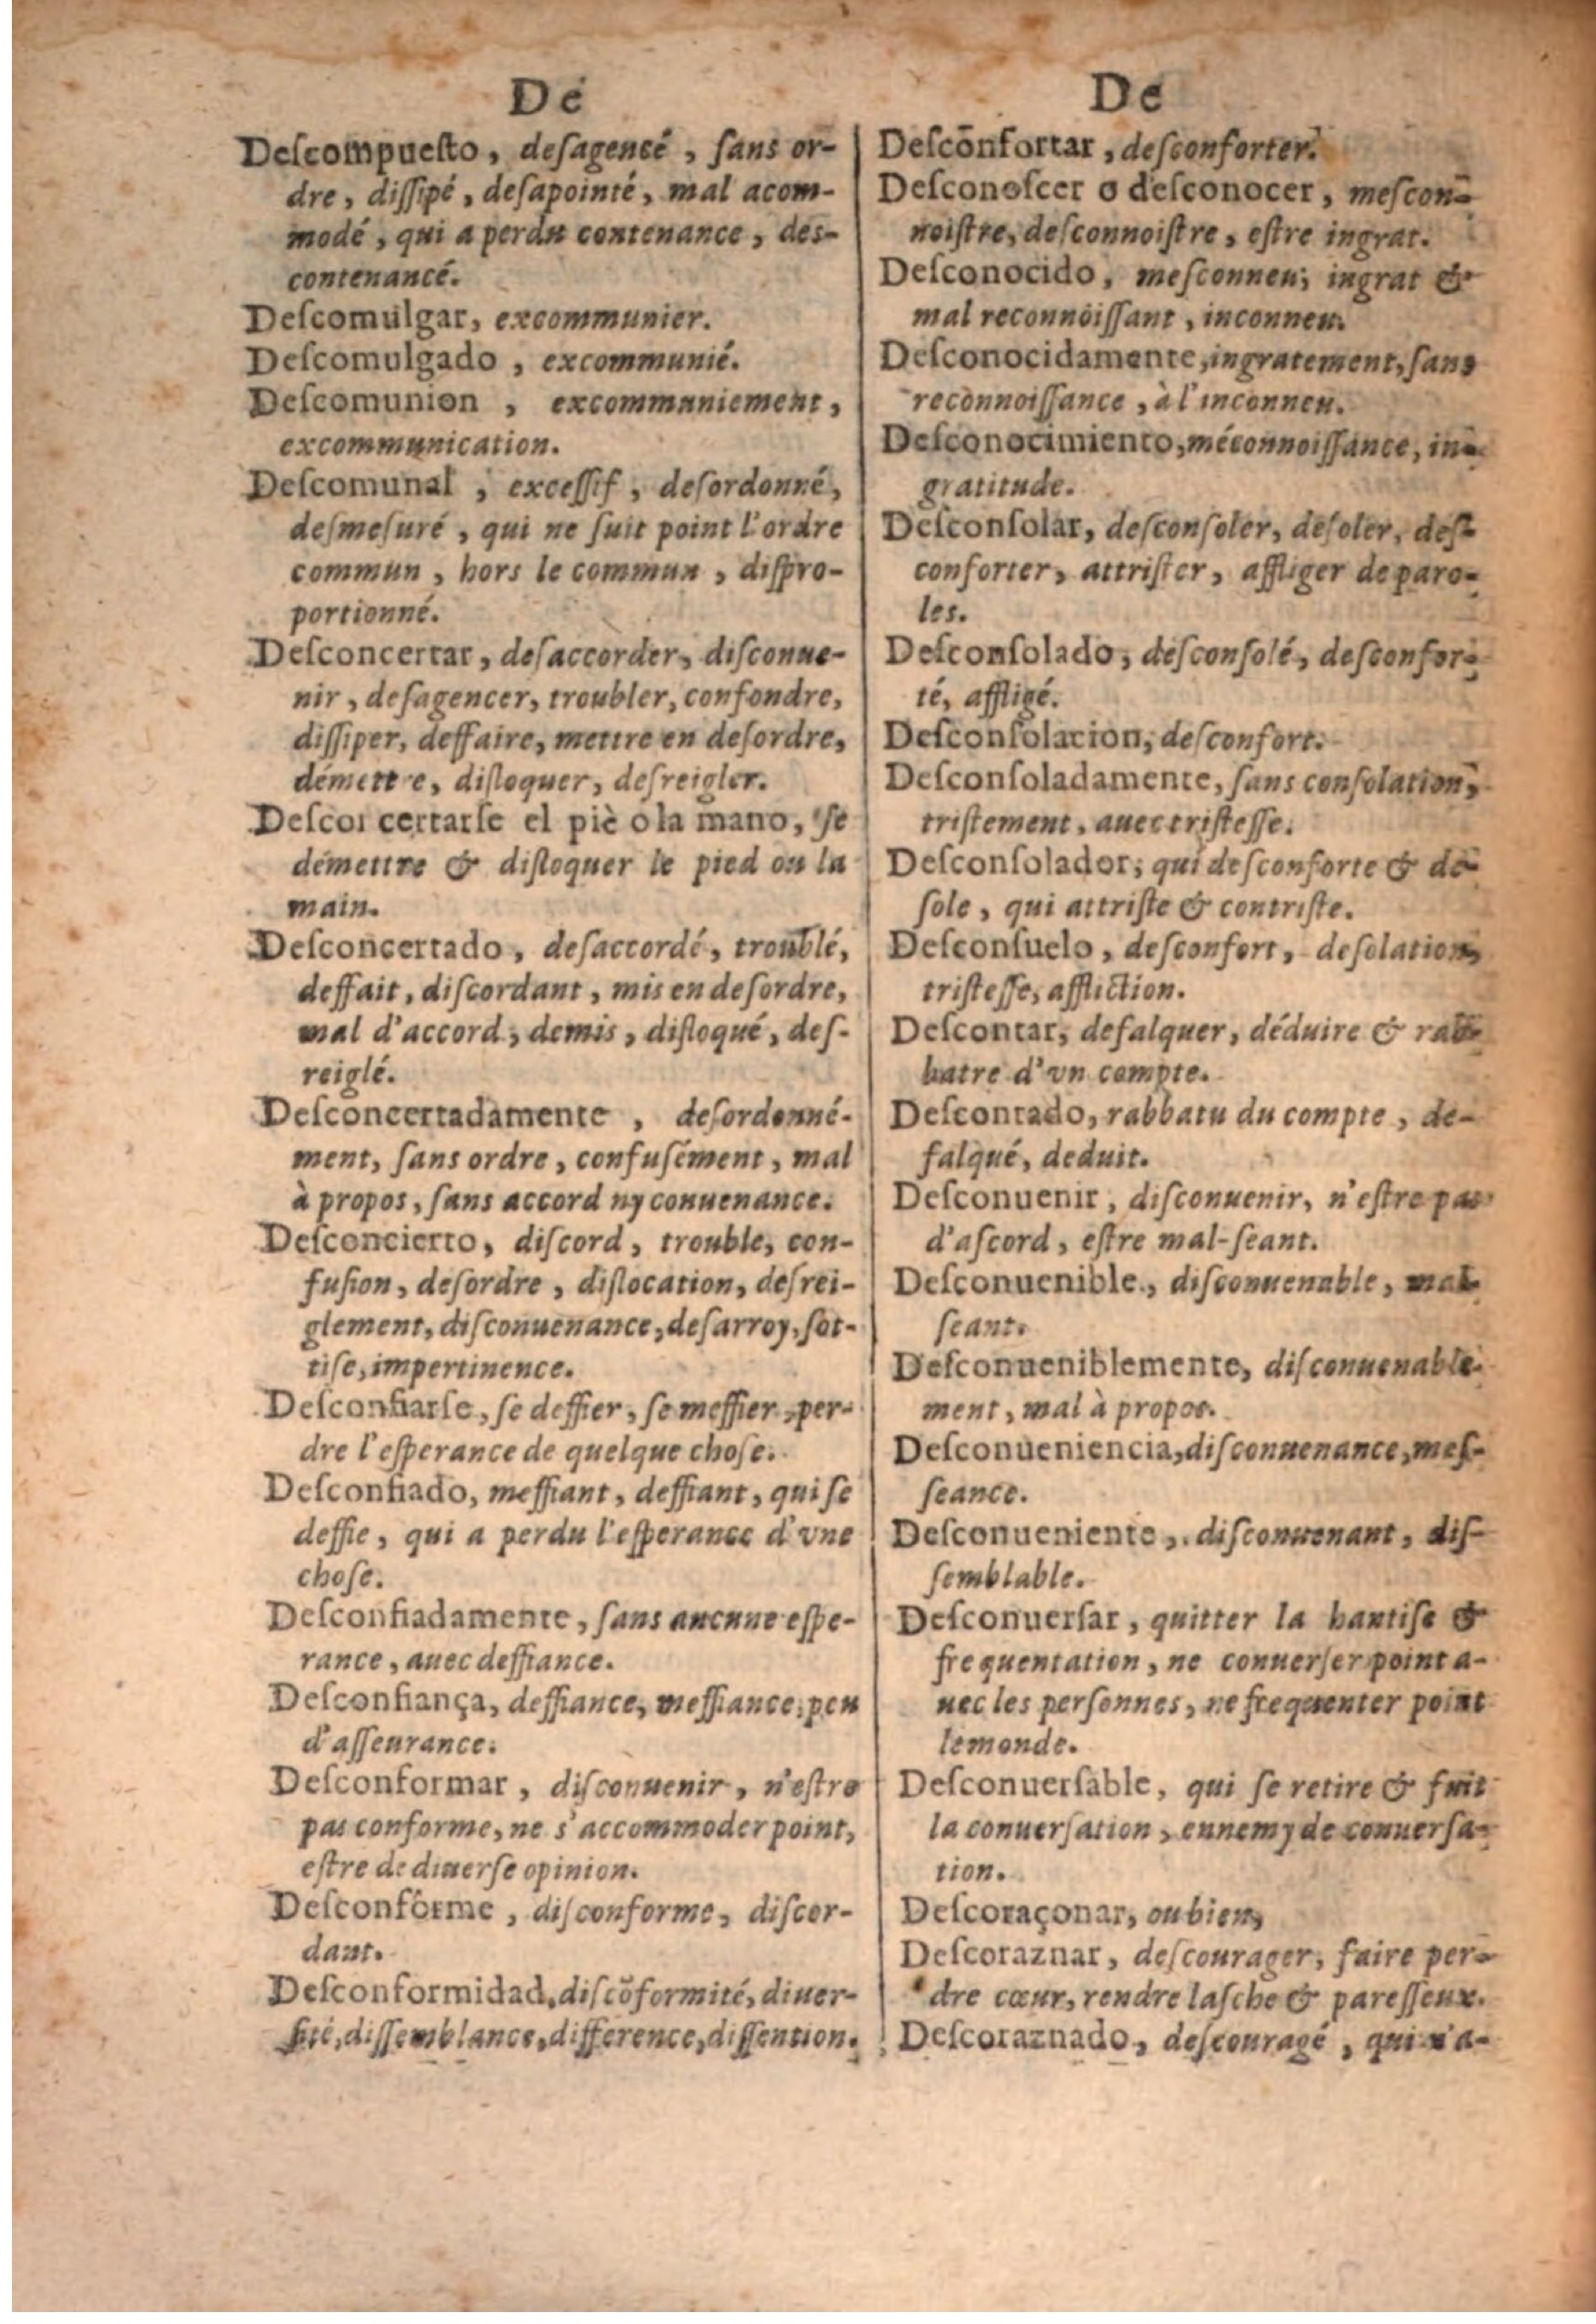 De
Deſcompueſto, deſagencé, ſans or-
dre, diſſipé, deſapointé, mal acom-
modé, qui a perdu contenance, des-
contenancé.
Deſcomulgar, excommunier.
Deſcomulgado, excommunié.
Deſcomunion, excommuniement,
excommunication.
Deſcomunal, exceſſif, deſordonné,
deſmeſuré, qui ne ſuit point l'ordre
commun, hors le commun, diſpro-
portionné.
Deſconcertar, deſaccorder, diſconue-
nir, deſagencer, troubler, confondre,
diſſiper, deffaire, mettre en deſordre,
démettre, diſloquer, deſreigler.
Deſcoı certarſe el piè o la mano, ſe
démettre & diſloquer le pied ou la
main.
Deſconcertado, deſaccordé, troublé,
deffait, diſcordant, mis en deſordre,
mal d'accord, demis, diſloqué, deſ-
reiglé.
Deſconcertadamente, deſordonné-
ment, ſans ordre, confuſément, mal
à propos, ſans accord ny conuenance.
Deſconcierto, diſcord, trouble, con-
fuſion, deſordre, diſlocation, deſrei-
glement, diſconuenance, deſarroy, ſot-
tiſe, impertinence.
Deſconfiarſe, ſe deffier, ſe meffier, per-
dre l'eſperance de quelque choſe.
Deſconfiado, meffiant, deffiant, qui ſe
deffie, qui a perdu l'eſperance d'vne
choſe.
Deſconfiadamente, ſans aucune eſpe-
rance, auec deffiance.
Deſconfiança, deffiance, meffiance, peu
d'aſſeurance.
Deſconformar, diſconuenir, n'eſtre
pas conforme, ne s'accommoder point,
eſtre de diuerſe opinion.
Deſconforme, diſconforme, diſcor-
dant.
Deſconformidad, diſcõformité, diuer-
ſité, diſſemblance, difference, diſſention.
De
Deſcõnfortar, deſconforter.
Deſconoſcer o deſconocer, meſcon-
noiſtre, deſconnoiſtre, eſtre ingrat.
Deſconocido, meſconneu, ingrat &
mal reconnoiſſant, inconneu.
Deſconocidamente, ingratement, ſans
reconnoiſſance, à l'inconneu.
Deſconocimiento, méconnoiſſance, in-
gratitude.
Deſconſolar, deſconſoler, deſoler, deſ-
conforter, attriſter, affliger de paro-
les.
Deſconſolado, deſconſolé, deſconfor-
té, affligé.
Deſconſolacion, deſconfort.
Deſconſoladamente, ſans conſolation,
triſtement, auec triſteſſe.
Deſconſolador, qui deſconforte & de-
ſole, qui attriſte & contriſte.
Deſconſuelo, deſconfort, deſolation,
triſteſſe, affliction.
Deſcontar, defalquer, déduire & rab-
batre d'vn compte.
Deſcontado, rabbatu du compte, de-
falqué, deduit.
Deſconuenir, diſconuenir, n'eſtre pas
d'aſcord, eſtre mal-ſeant.
Deſconuenible, diſconuenable, mal
ſeant.
Deſconueniblemente, diſconuenable-
ment, mal à propos.
Deſconueniencia, diſconuenance, meſ-
ſeance.
Deſconueniente, diſconuenant, diſ-
ſemblable.
Deſconuerſar, quitter la hantiſe &
frequentation, ne conuerſer point a-
uec les perſonnes, ne frequenter point
le monde.
Deſconuerſable, qui ſe retire & fuit
la conuerſation, ennemy de conuerſa-
tion.
Deſcoraçonar, ou bien,
Deſcoraznar, deſcourager, faire per-
dre cœur, rendre laſche & pareſſeux.
Deſcoraznado, deſcouragé, qui n'a-